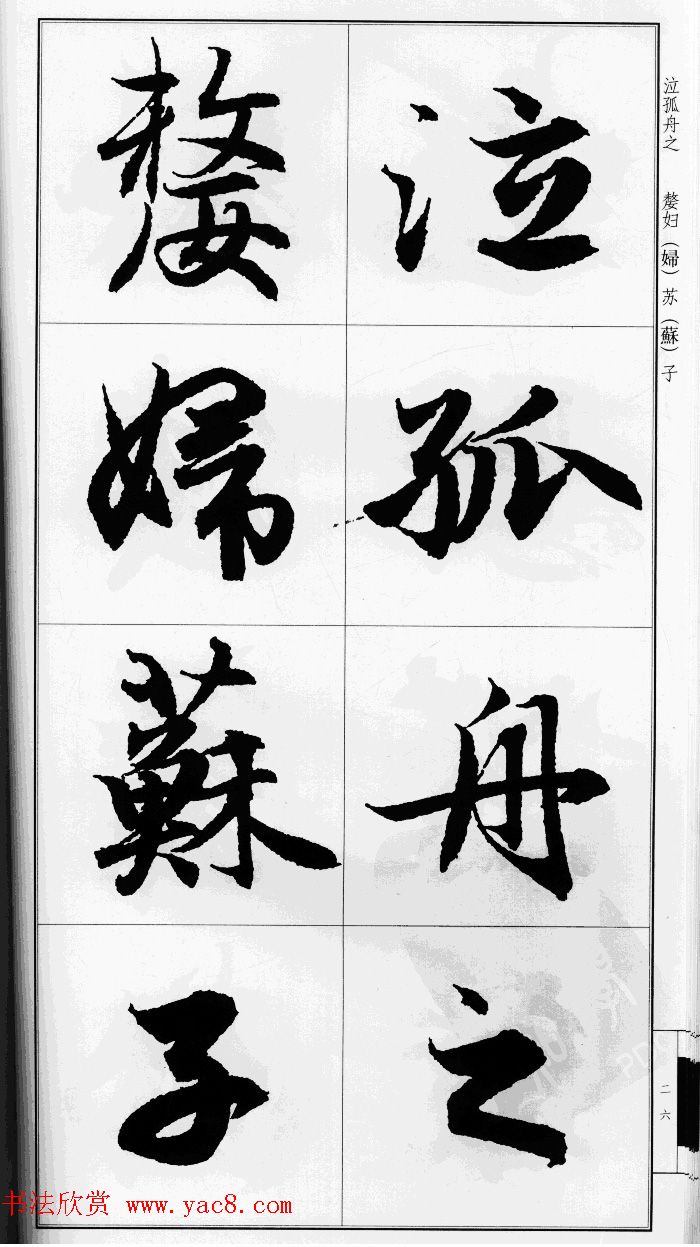 泣孤舟之 嫠妇(婦)苏(蘇)子
泣孤舟之
嫠婦蘇子
二六
书法欣赏 www.yac8.com